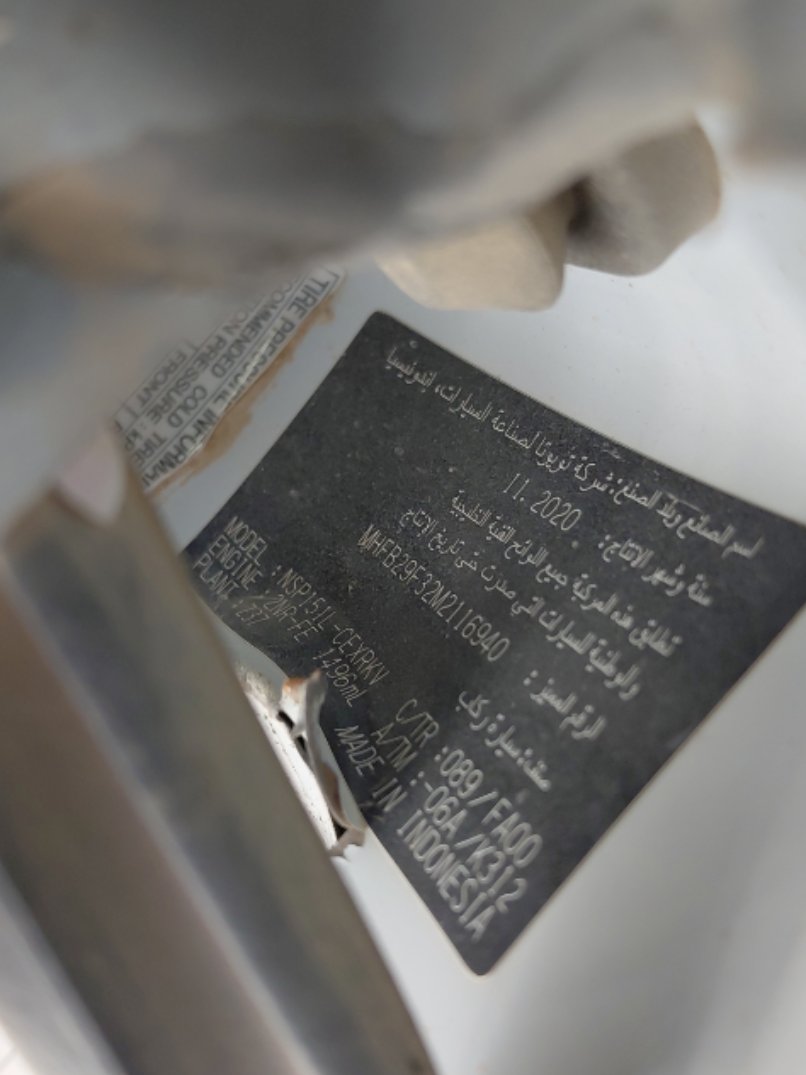 TIRE PRESSURE INFORMA
COMMENDED COLD TIRE
ION PRESSURE : KP
FRONT
اسم المصنع وبلد الصنع: شركة تويوتا لصناعة السيارات، اندونيسيا
سنة وشهر الانتاج: 11. 2020
تطابق هذه المركبة جميع اللوائح الفنية الخليجية
والوطنية للسيارات التي صدرت حتى تاريخ الانتاج
الرقم المميز : MHFB29F32M2116940
صنف: سيارة ركاب
MODEL : NSP151L-CEXRKV C/TR :089/FA00
ENGINE :2NR-FE 1496mL A/TM :-06A/K312
PLANT :Z37 MADE IN INDONESIA